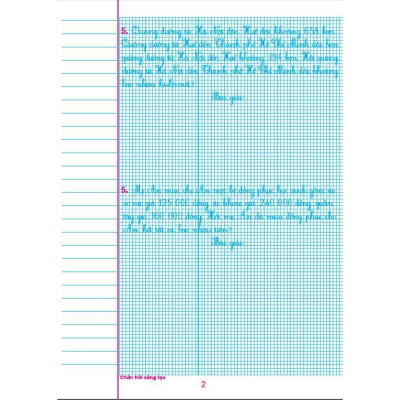 5. Quãng đường từ Hà Nội đến Huế dài khoảng 658 km.
Quãng đường từ Huế đến Thành phố Hồ Chí Minh dài hơn
quãng đường từ Hà Nội đến Huế khoảng 394 km. Hỏi quãng
đường từ Hà Nội đến Thành phố Hồ Chí Minh dài khoảng
bao nhiêu ki-lô-mét?
Bài giải
5. Mẹ An mua cho An một bộ đồng phục học sinh gồm: áo
sơ mi giá 125 000 đồng, áo khoác giá 240 000 đồng, quần
tây giá 160 000 đồng. Hỏi mẹ An đã mua đồng phục cho
An hết tất cả bao nhiêu tiền?
Bài giải
Chân trời sáng tạo
2